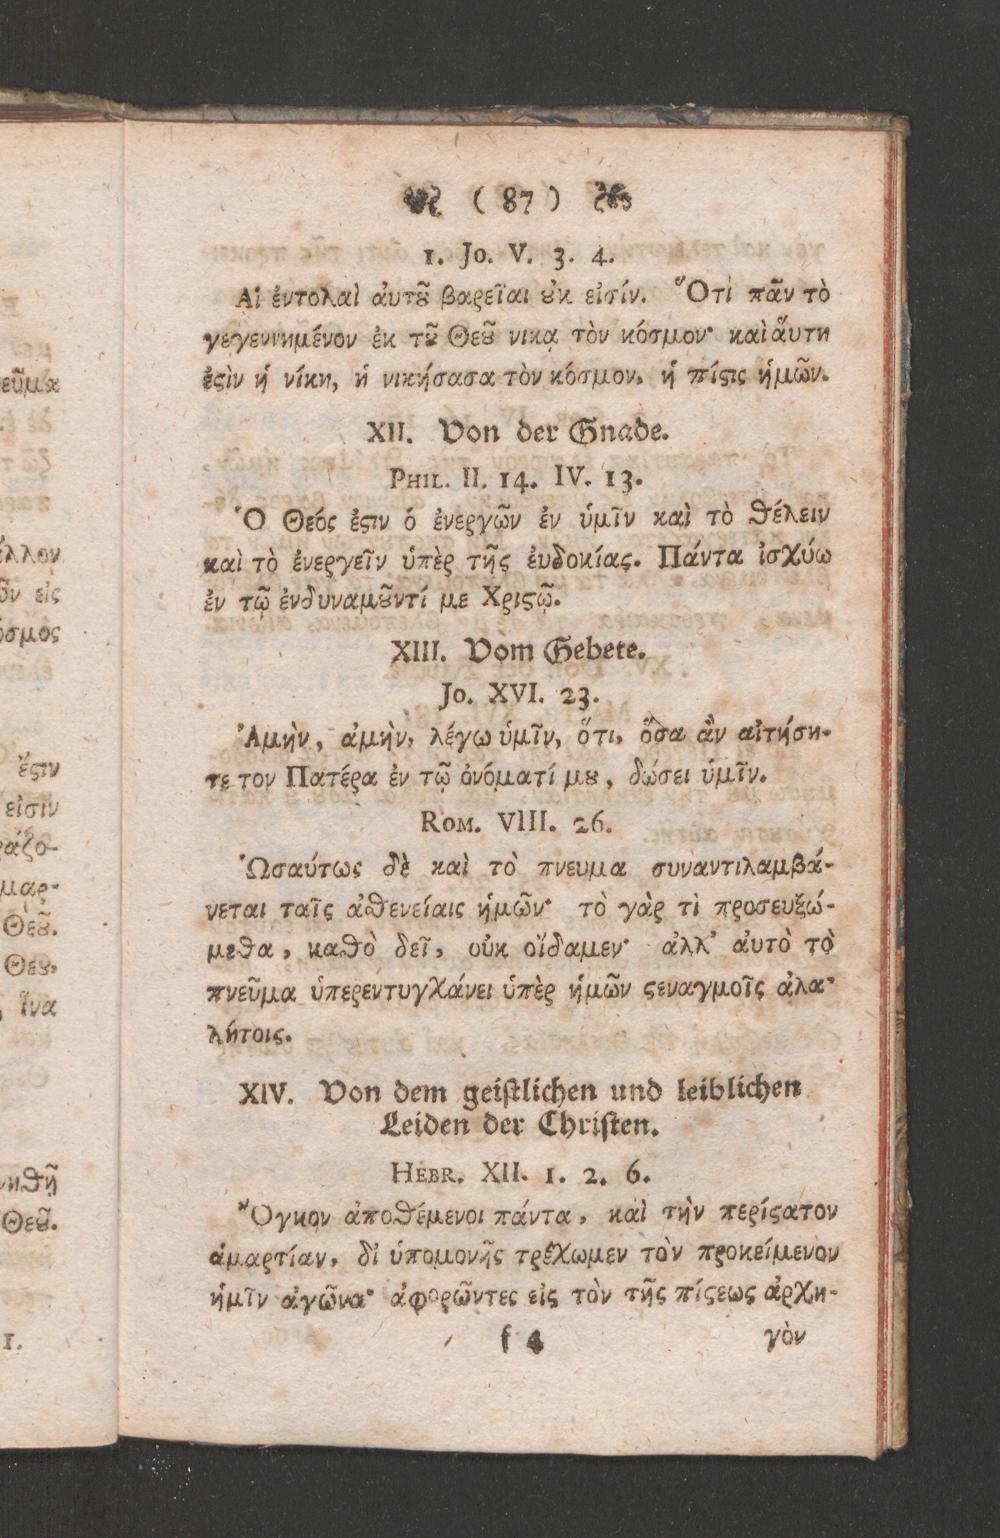 ( 87 )
1. Jo. V. 3. 4.
Αἱ ἐντολαὶ ἀυτȣ͂ βαρεῖαι ȣ̓κ εἰσίν. Ὅτι πᾶν τὸ
γεγεννημένον ἐκ τȣ͂ Θεȣ͂ νικᾳ τὸν κόσμον· καὶ ἅυτη
ἐςὶν ἡ νίκη, ἡ νικήσασα τὸν κόσμον, ἡ πίςις ἡμῶν.
XII. Von der Gnade.
PHIL. II. 14. IV. 13.
Ὁ Θεός ἐςιν ὁ ἐνεργῶν ἐν ὑμῖν καὶ τὸ θέλειν
καὶ τὸ ἐνεργεῖν ὑπὲρ τῆς ἐυδοκίας. Πάντα ἰσχύω
ἐν τῷ ἐνδυναμȣ͂ντί με Χριςῷ.
XIII. Vom Gebete.
Jo. XVI. 23.
Ἀμὴν, ἀμὴν, λέγω ὑμῖν, ὅτι, ὅσα ἂν αἰτήση-
τε τον Πατέρα ἐν τῷ ὀνόματί μȣ, δώσει ὑμῖν.
ROM. VIII. 26.
Ὡσαύτως δὲ καὶ τὸ πνευμα συναντιλαμβά-
νεται ταῖς ἀσθενείαις ἡμῶν· τὸ γὰρ τὶ προσευξώ-
μεθα, καθὸ δεῖ, οὐκ οἴδαμεν· ἀλλ' ἀυτὸ τὸ
πνεῦμα ὑπερεντυγχάνει ὑπὲρ ἡμῶν ςεναγμοῖς ἀλα-
λήτοις.
XIV. Von dem geistlichen und leiblichen
Leiden der Christen.
HEBR. XII. 1. 2. 6.
Ὄγκον ἀποθέμενοι πάντα, καὶ τὴν περίςατον
ἁμαρτίαν, δἰ ὑπομονῆς τρέχωμεν τὸν προκείμενον
ἡμῖν ἀγῶνα· ἀφορῶντες εἰς τὸν τῆς πίςεως ἀρχη-
f 4 γὸν
εῦμα
λλον
εἰς
όσμος
ἔςιν
εἰσιν
ράζο-
μαρ-
Θεȣ͂.
Θεȣ,
, ἵνα
νηθῇ
Θεȣ͂.
1.